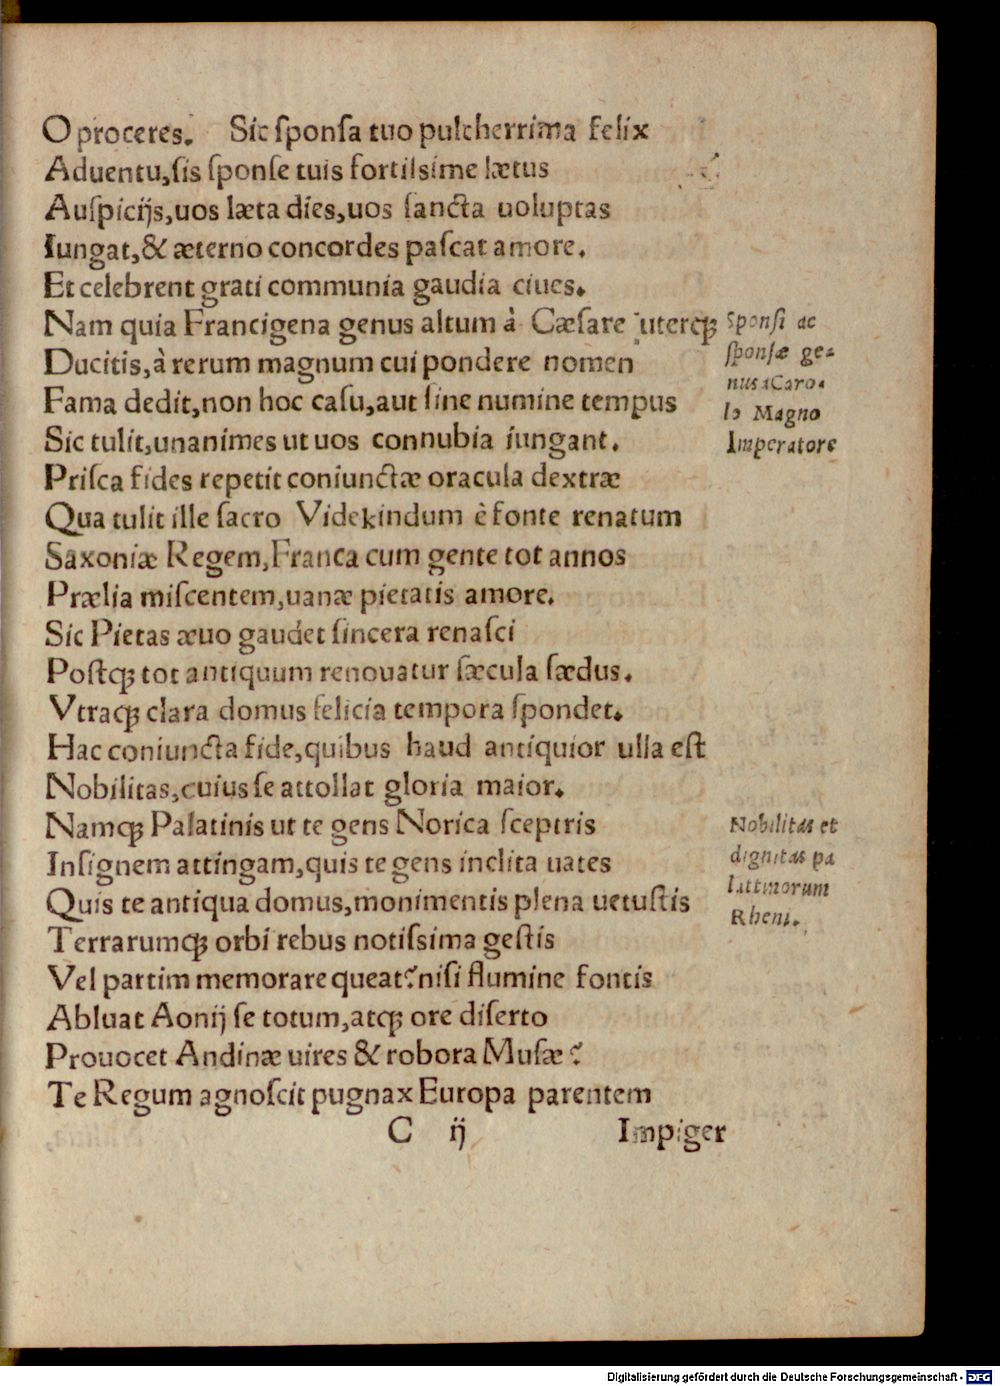 O proceres. Sic ſponſa tuo pulcherrima felix
Aduentu, ſis ſponſe tuis fortiſsime lætus
Auſpicijs, uos læta dies, uos ſancta uoluptas
Iungat, & æterno concordes paſcat amore.
Et celebrent grati communia gaudia ciues.
Nam quia Francigena genus altum à Cæſare uterqꝫ
Ducitis, à rerum magnum cui pondere nomen
Fama dedit, non hoc caſu, aut ſine numine tempus
Sic tulit, unanimes ut uos connubia iungant.
Sponſi ac
ſponſæ ge-
nus à Caro-
lo Magno
Imperatore
Priſca fides repetit coniunctæ oracula dextræ
Qua tulit ille ſacro Videkindum è fonte renatum
Saxoniæ Regem, Franca cum gente tot annos
Prælia miſcentem, uanæ pietatis amore.
Sic Pietas æuo gaudet ſincera renaſci
Poſtqꝫ tot antiquum renouatur ſæcula fædus.
Vtraqꝫ clara domus felicia tempora ſpondet.
Hac coniuncta fide, quibus haud antiquior ulla eſt
Nobilitas, cuius ſe attollat gloria maior.
Namqꝫ Palatinis ut te gens Norica ſceptris
Inſignem attingam, quis te gens inclita uates
Quis te antiqua domus, monimentis plena uetuſtis
Terrarumqꝫ orbi rebus notiſsima geſtis
Nobilitas et
dignitas pa
latinorum
Rheni.
Vel partim memorare queat? niſi flumine fontis
Abluat Aonij ſe totum, atqꝫ ore diſerto
Prouocet Andinæ uires & robora Muſæ?
Te Regum agnoſcit pugnax Europa parentem
C ij Impiger
Digitalisierung gefördert durch die Deutsche Forschungsgemeinschaft - DFG